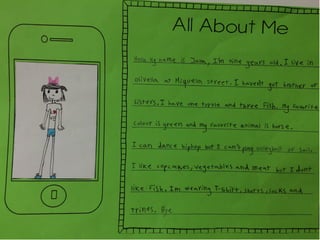 All About Me
Hello My name is Joana, I'm nine years old. I live in
Olivella at Miquela street. I haven't got brother or
sisters. I have one turtle and three Fish. My favorite
colour is green and my favorite animal is horse.
I can dance hiphop but I can't play volleyball or
I like cupcakes, vegetables and meat but I don't
like Fish. I'm wearing T-shirt, shorts, socks and
trines, Bye